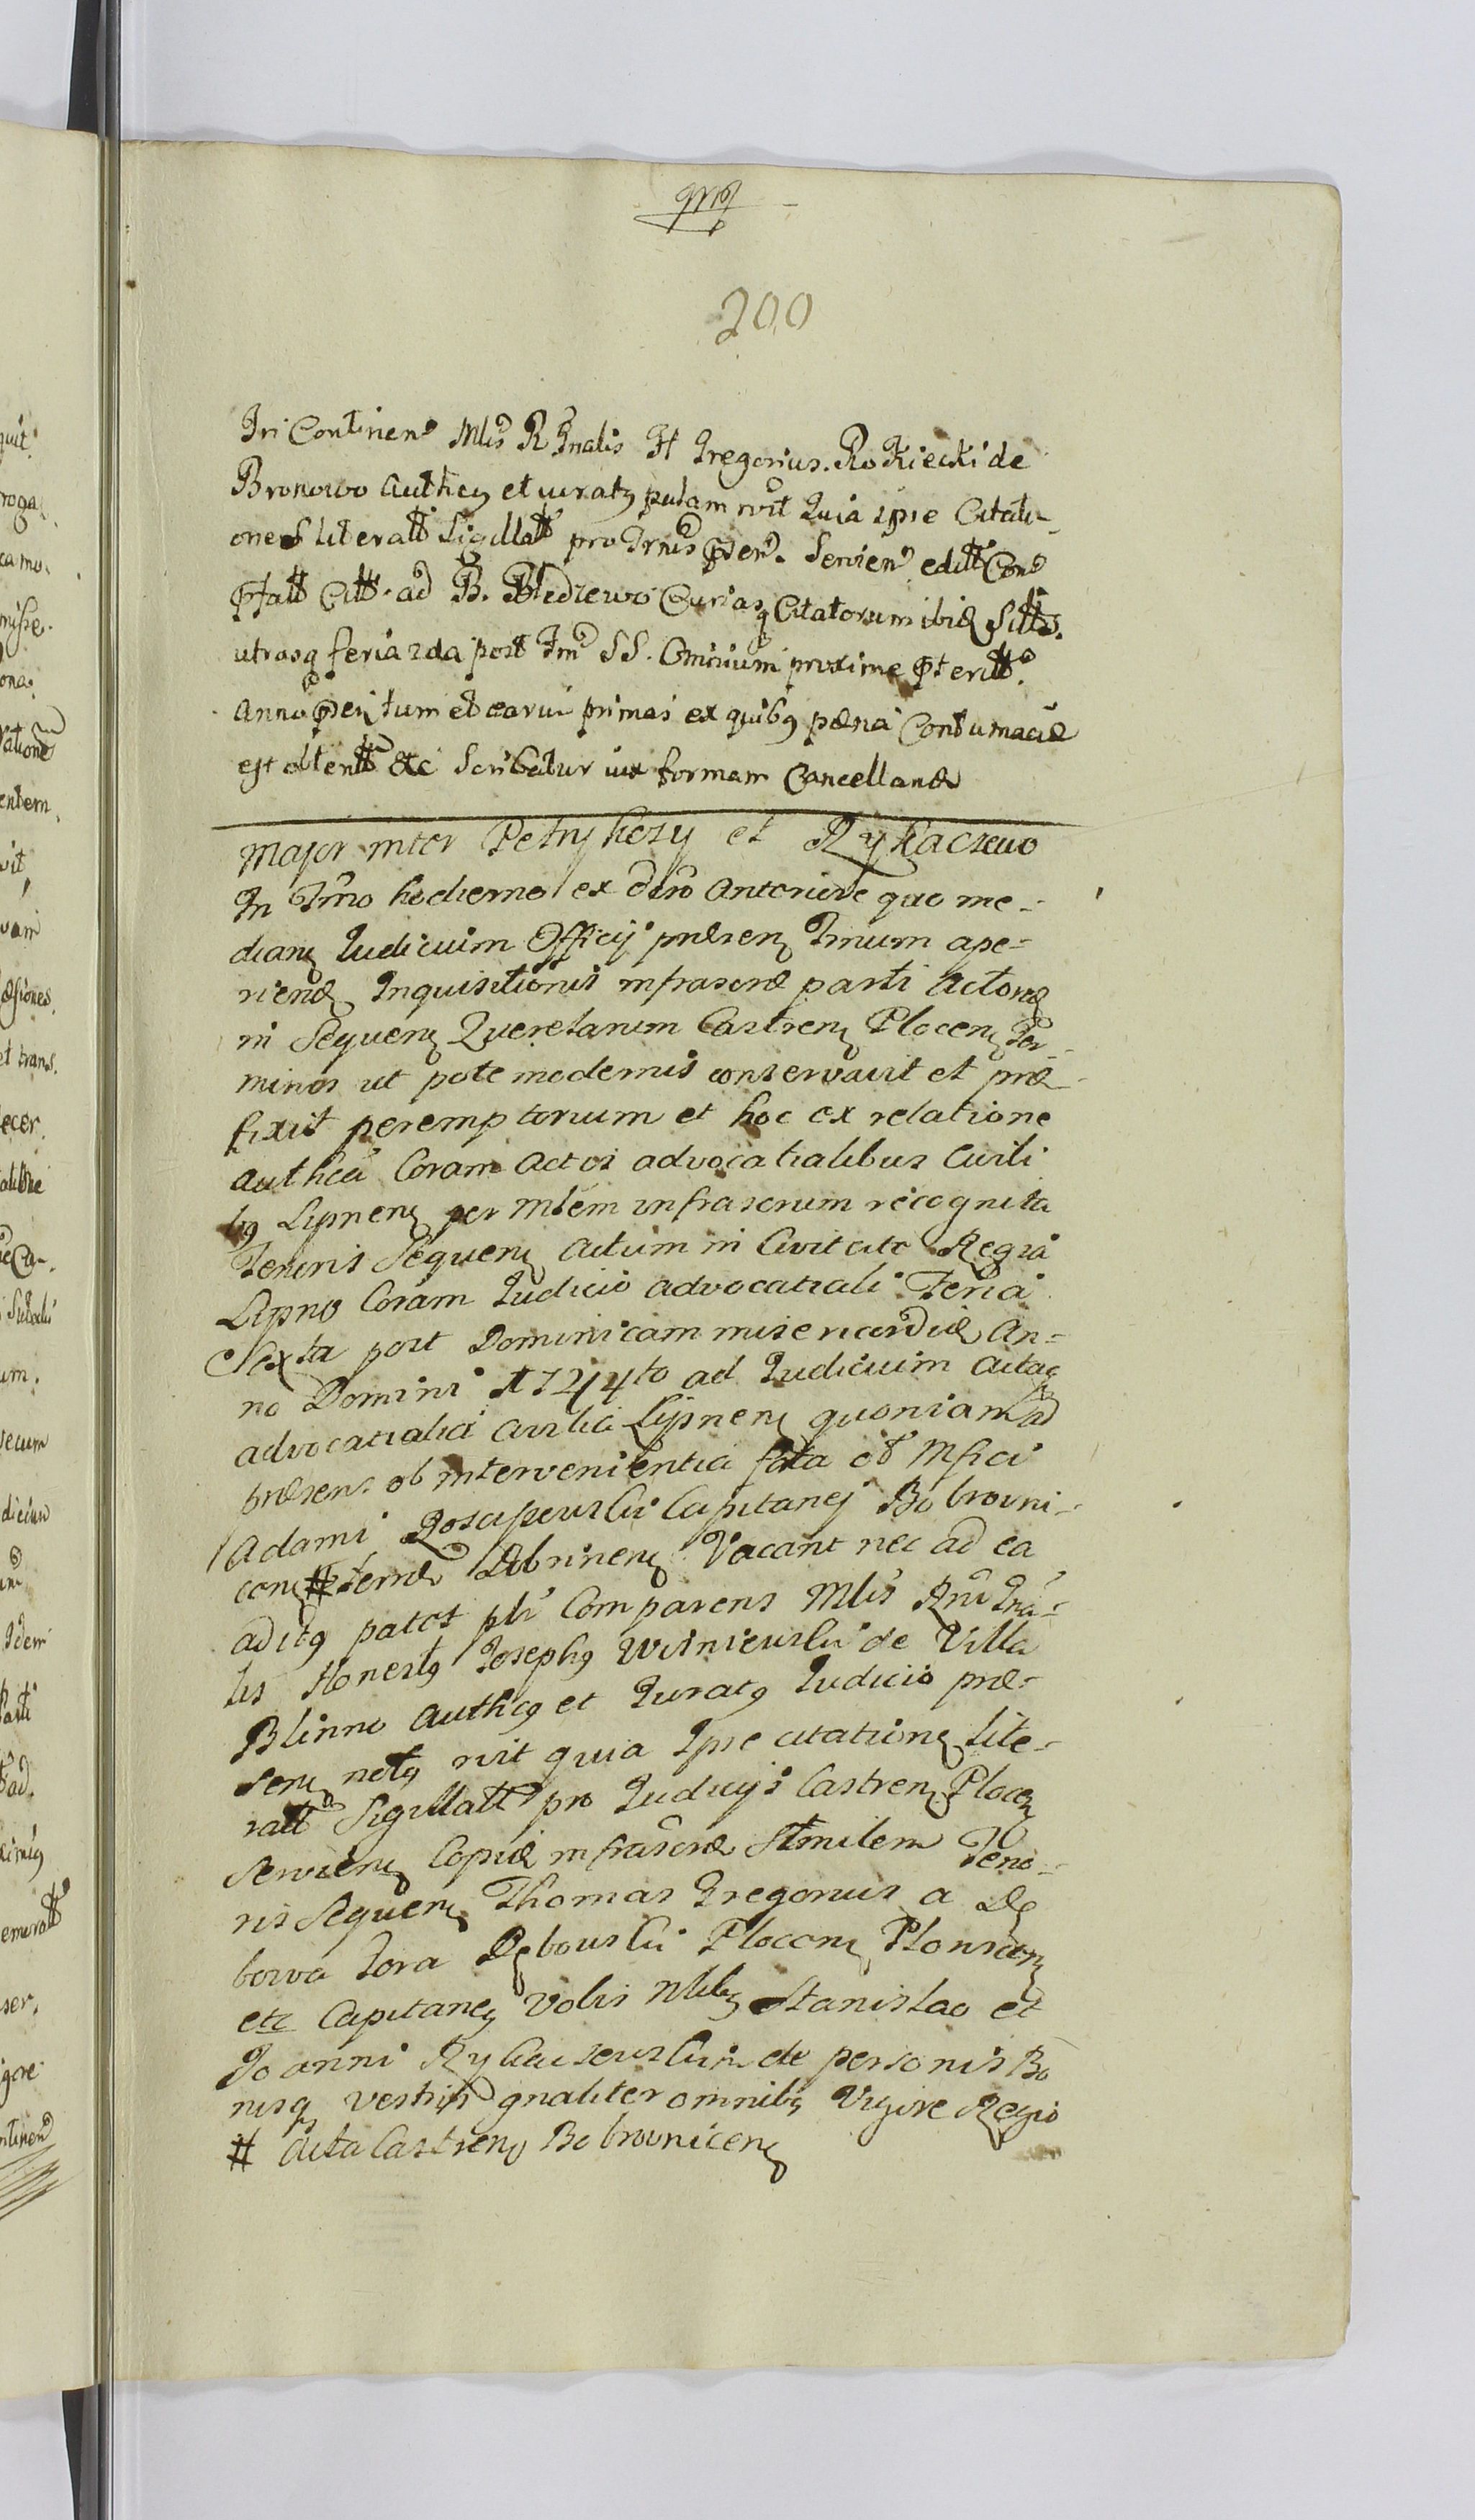 200
In Continen Mlis R Gnalis H Gregorius. Rokiecki de
Bronowo Authcg et iuratg palam rvit Quia ipse Citati-
ones literatt Sigillatt pro Trnis pden. Servien editt Con
pfatt Citt. ad B. Bledzewo Curias Citatorum ibid sitts.
utrasq feria 2da post Fm SS. Omnium proxime pteritt.
Anno pden tum et earum primas ex quibg pæna Contumaciæ
est obtentt etc Scribatur iux formam Cancellariæ
Major inter Petrykozy et Rykaczewo
In Trno hodierno ex dtro Anteriore quo me-
dian Iudicium Officij præsen Trnum ape-
riend Inquisitionis infrascræ parti Actoræ
in Sequen Querelarum Castren Plocen Ter-
minos ut pote modernis conservavit et præ
fixit peremptorium et hoc ex relatione
Authca Coram Actis advocatialibus Civili
bg Lipnen per Mlem infrascrum recognita
Tenoris Sequen Actum in Civitate Regia
Lipno Coram Iudicio advocatiali Feria
Sexta post Dominicam misericordiæ An-
no Domini 1744to ad Iudicium Actaq
advocatialia Civilia Lipnen quoniam ad
præsens ob intervenientia fata M
Adami Capitanej Bobrowni-
cen # terræ Dobrinen Vacant nec ad ea
aditg patet plr Comparens Mlis Rni Gna-
lis Honestg Josephg Wisniewski de Villa
Blinno Authcg et Juratg Iudicio præ-
sen notg rvit quia Ipse citation lite-
ratt Sigillatt pro Iudicijs Castren Plocen
Servien Copiæ infrascræ Similem Teno-
ris Sequen Thomas Gregorius a De
bowa Gora Debowski Plocen Plonscen
etc Capitaneg Vobis Nlibg Stanislao et
Joanni Rykaczewskim de personis Bo
nisq vestris gnaliter omnibg Vigore Regio
# Acta Castren Bobrownicen